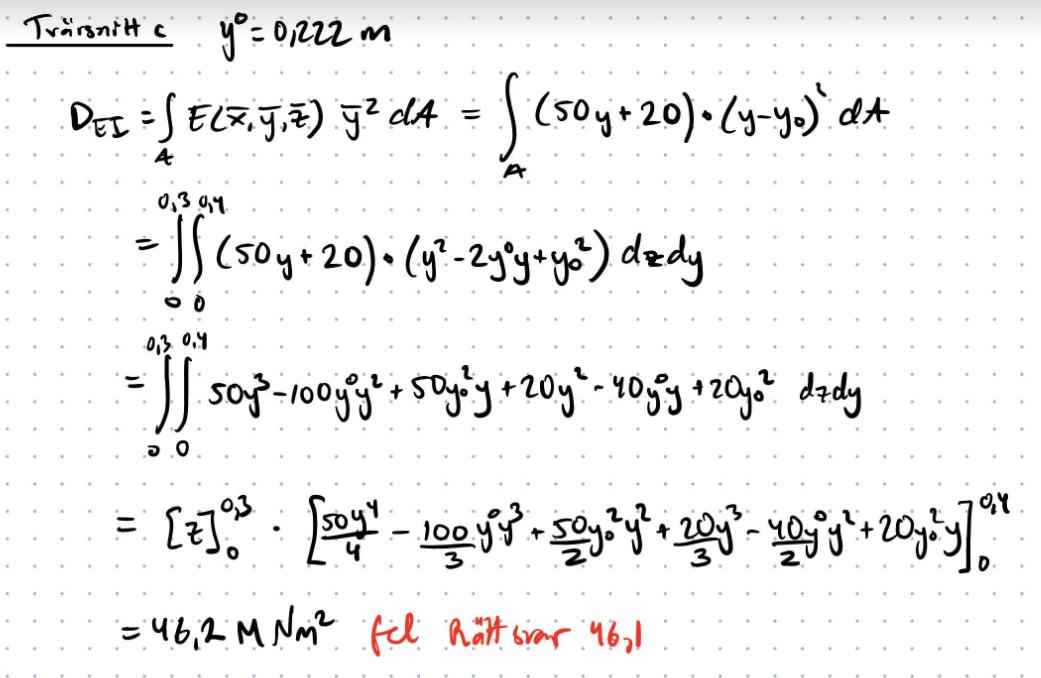 Tvärsnitt c y° = 0,222 m
D_EI = ∫_A E(x̄,ȳ,z̄) ȳ² dA = ∫_A (50y + 20)·(y-y₀)² dA
= ∫₀^0,3 ∫₀^0,4 (50y + 20)·(y² - 2y°y + y₀²) dzdy
= ∫₀^0,3 ∫₀^0,4 50y³ - 100y°y² + 50y₀²y + 20y² - 40y°y + 20y₀² dzdy
= [z]₀^0,3 · [50y⁴/4 - 100/3 y°y³ + 50/2 y₀²y² + 20y³/3 - 40/2 y°y² + 20y₀²y]₀^0,4
= 46,2 M Nm² fel Rätt svar 46,1